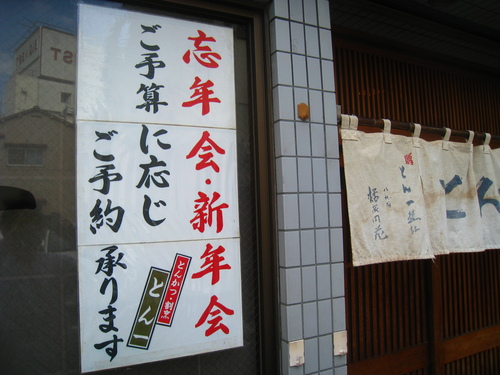 忘年会・新年会
ご予算に応じ
ご予約
承ります
とんかつ・割烹
とん一
とん一
とん